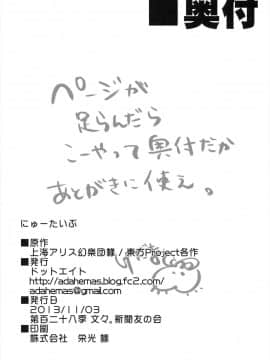 ■奥付
ページが
足らんだら
こーやって奥付だか
あとがきに使え。
にゅーたいぷ
■原作
上海アリス幻樂団様/東方Project各作
■発行
ドットエイト
http://adahemas.blog.fc2.com/
adahemas@gmail.com
■発行日
2013/11/03
第百二十八季 文々。新聞友の会
■印刷
株式会社 栄光 様